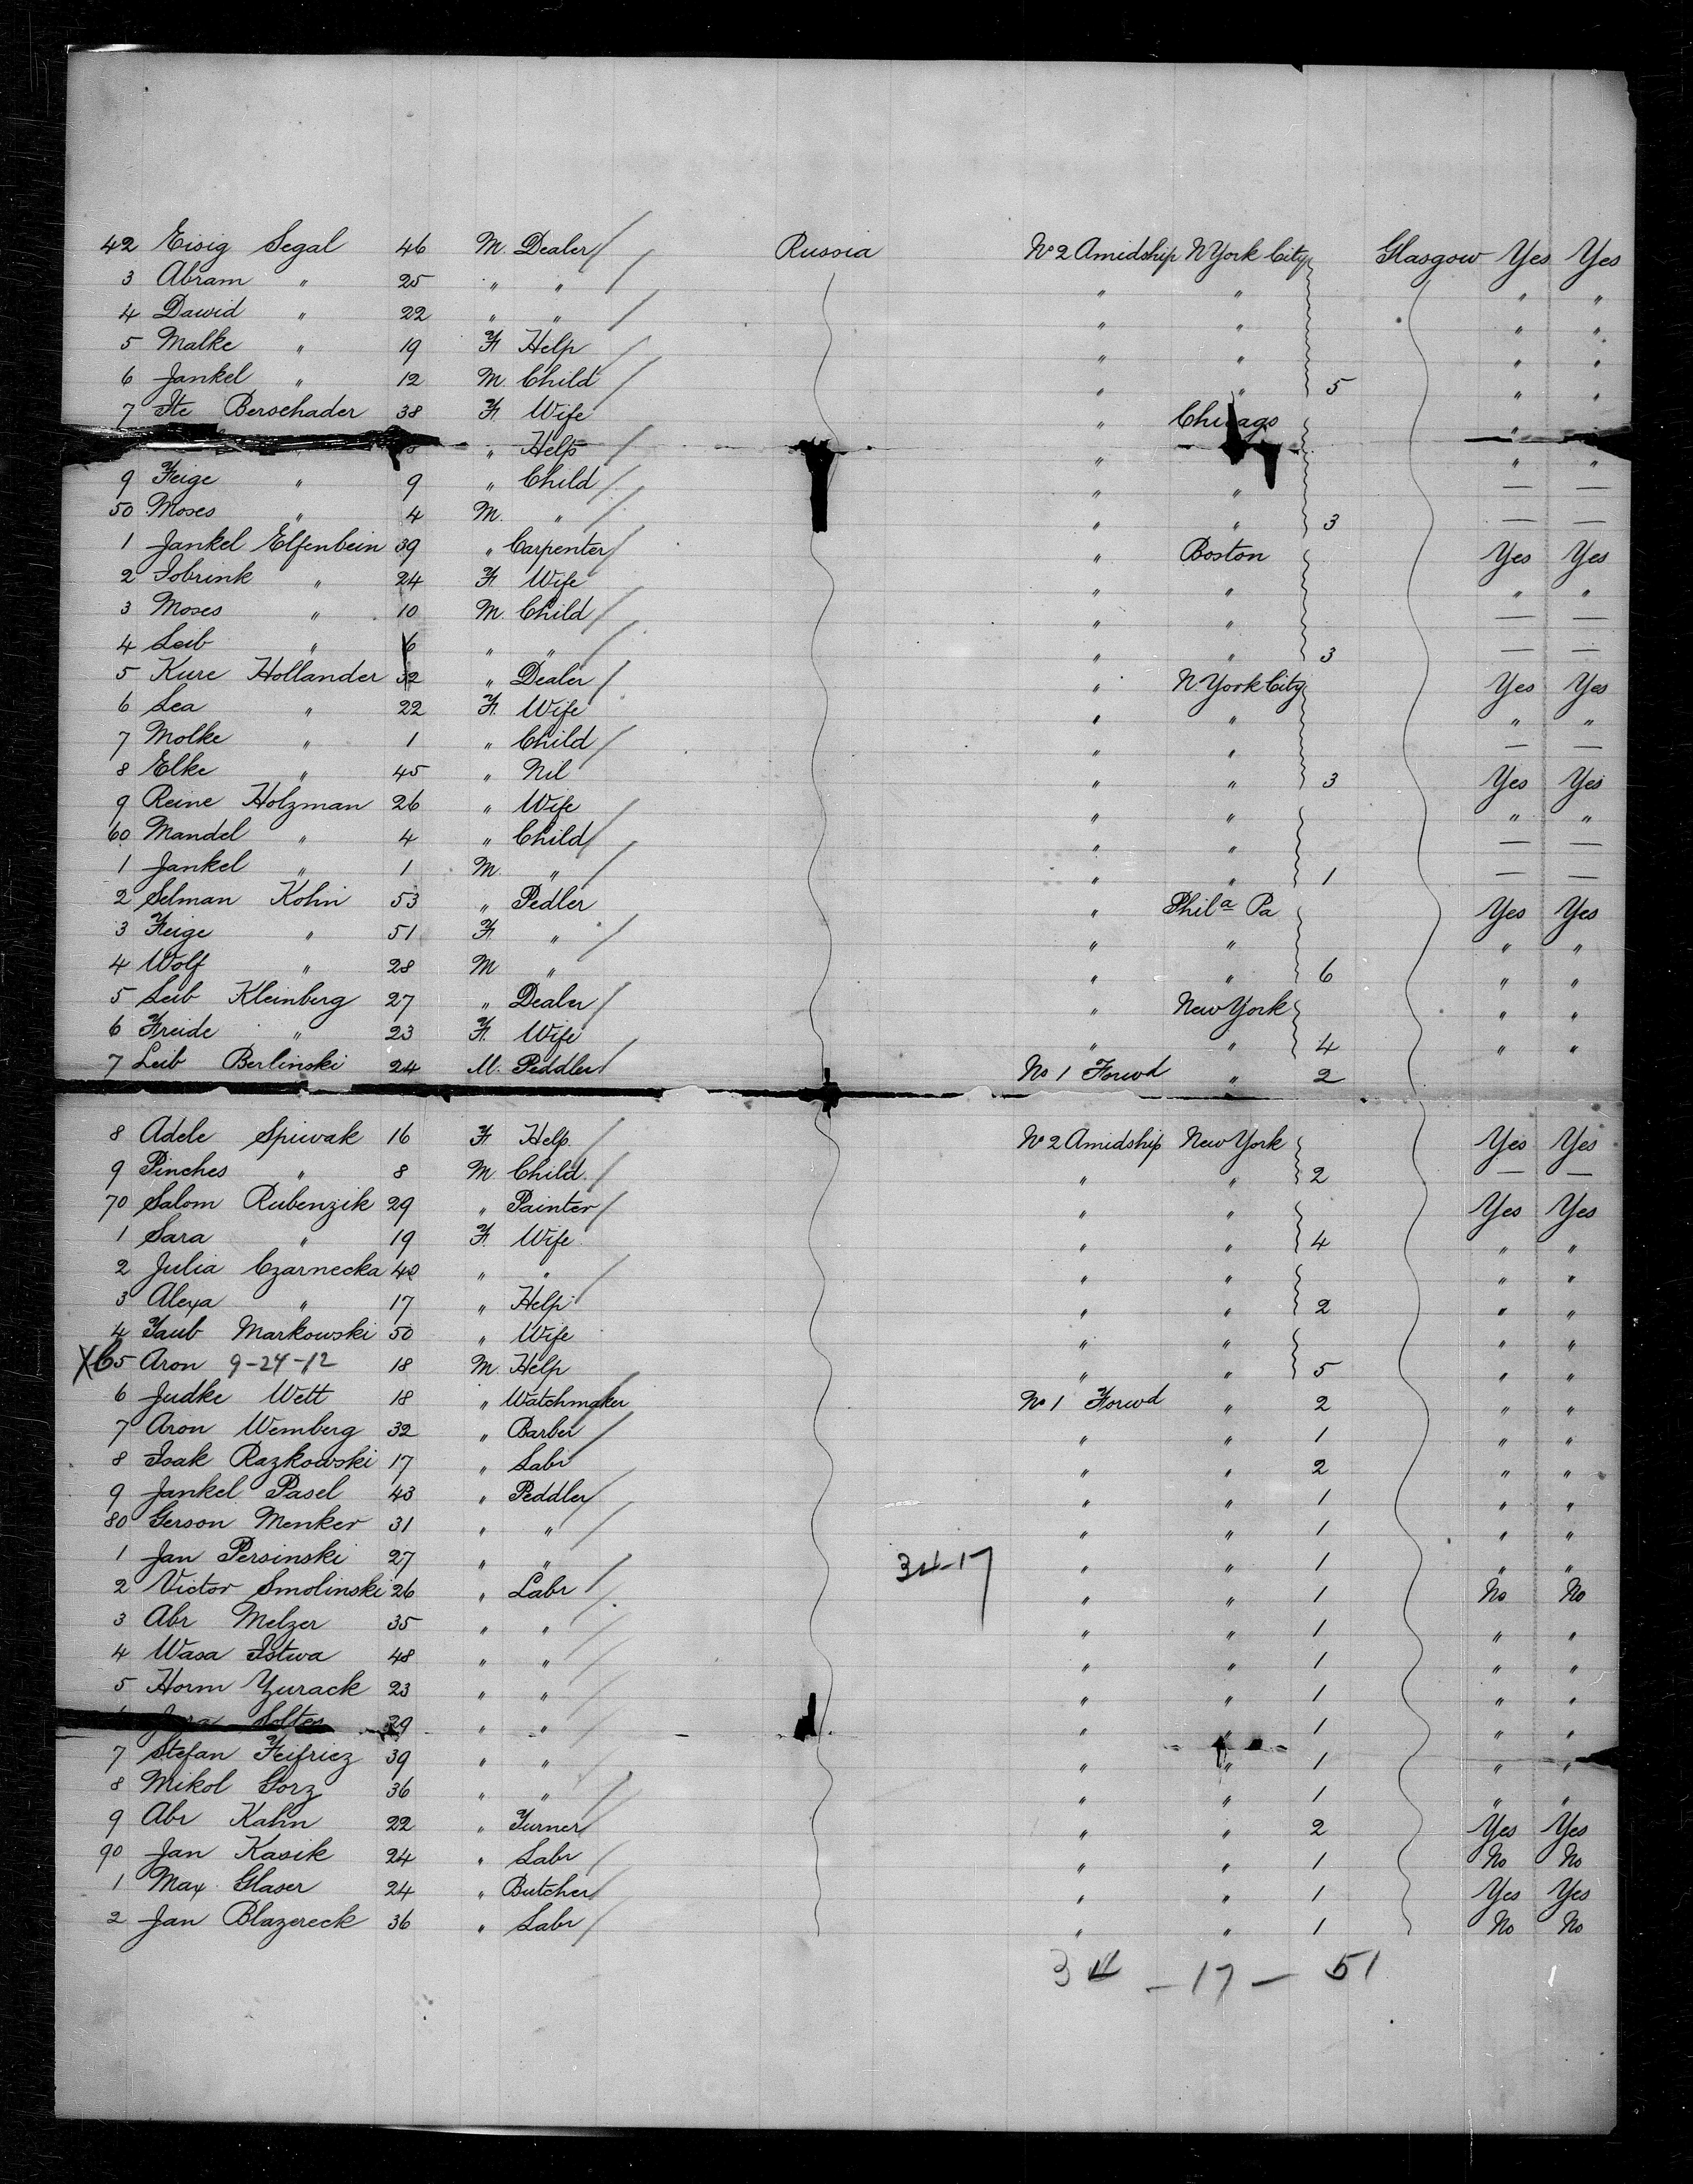 42 Eisig Segal 46 M. Dealer Russia No 2 Amidship N York City Glasgow Yes Yes
3 Abram " 25 " " " " " "
4 Dawid " 22 " " " " " "
5 Malke " 19 F. Help " " " "
6 Jankel " 12 M. Child " " 5 " "
7 Ite Berschader 38 F. Wife " Chicago "
" Help " " "
9 Feige " 9 " Child " " — —
50 Moses " 4 M. " " " 3 — —
1 Jankel Elfenbein 39 " Carpenter " Boston Yes Yes
2 Dobrink " 24 F. Wife " " " "
3 Moses " 10 M. Child " " — —
4 Leib " 6 " " " " 3 — —
5 Kure Hollander 32 " Dealer " N. York City Yes Yes
6 Lea " 22 F. Wife " " " "
7 Molke " 1 " Child " " — —
8 Elke " 45 " Nil " " 3 Yes Yes
9 Reine Holzman 26 " Wife " " " "
60 Mandel " 4 " Child " " — —
1 Jankel " 1 M. " " " 1 — —
2 Selman Kohn 53 " Pedler " Phila Pa Yes Yes
3 Feige " 51 F. " " " " "
4 Wolf " 28 M " " " 6 " "
5 Leib Kleinberg 27 " Dealer " New York " "
6 Freide " 23 F. Wife " " 4 " "
7 Leib Berlinski 24 M. Peddler No 1 Forwd " 2
8 Adele Spiwak 16 F. Help. No 2 Amidship New York Yes Yes
9 Pinches " 8 M Child " " 2 — —
70 Salom Rubenzik 29 " Painter " " Yes Yes
1 Sara " 19 F. Wife " " 4 " "
2 Julia Czarnecka 40 " " " " " "
3 Alexa " 17 " Help " " 2 " "
4 Taub Markowski 50 " Wife " " " "
X C 5 Aron 9-24-12 " 18 M. Help " " 5 " "
6 Judke Wett 18 " Watchmaker No 1 Forwd " 2 " "
7 Aron Wemberg 32 " Barber " " 1 " "
8 Isak Razkowski 17 " Labr " " 2 " "
9 Jankel Pasel 43 " Peddler " " 1 " "
80 Gerson Menker 31 " " " " 1 " "
1 Jan Persinski 27 " " 34-17 " " 1 " "
2 Victor Smolinski 26 " Labr " " 1 No No
3 Abr Melzer 35 " " " " 1 " "
4 Wasa Istwa 48 " " " " 1 " "
5 Horm Yurack 23 " " " " 1 " "
Soltes 29 " " " " 1 " "
7 Stefan Feifricz 39 " " " " 1 " "
8 Mikol Gorz 36 " " " " 1 " "
9 Abr Kahn 22 " Turner " " 2 Yes Yes
90 Jan Kasik 24 " Labr " " 1 No No
1 Max Glaser 24 " Butcher " " 1 Yes Yes
2 Jan Blazereck 36 " Labr " " 1 No No
34 - 17 - 51